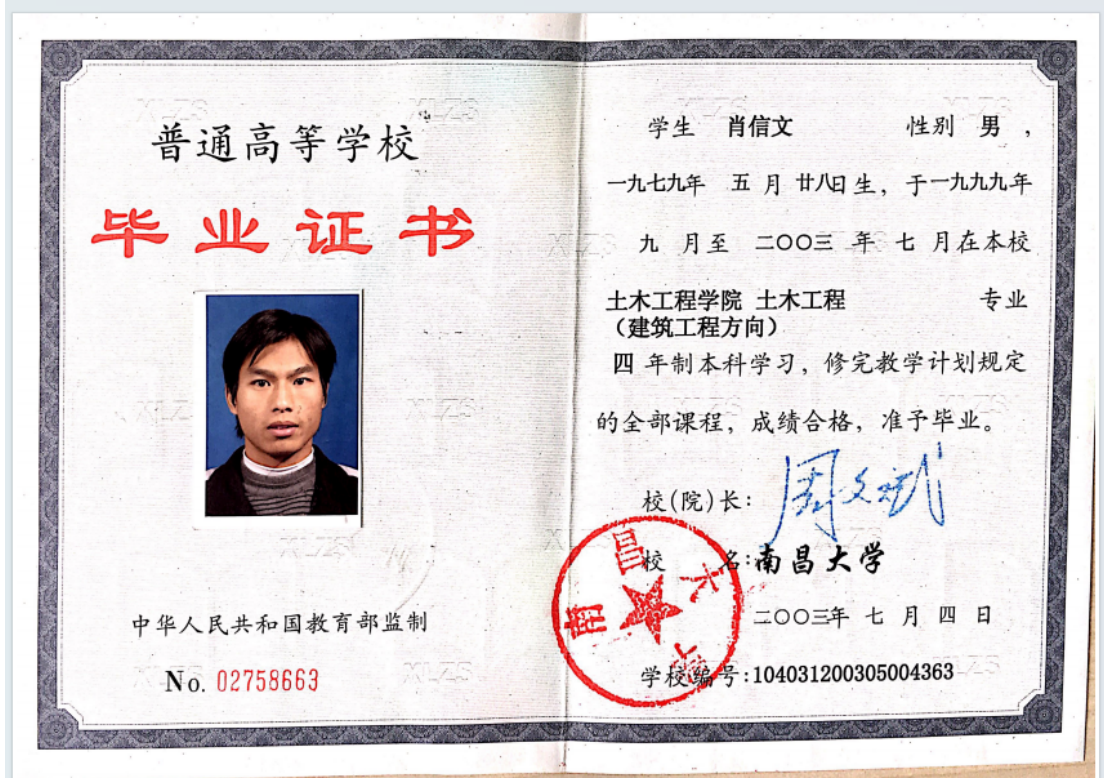 普通高等学校
毕业证书
中华人民共和国教育部监制
No. 02758663
学生 肖信文 性别 男 ，
一九七九年 五 月 廿八日生，于一九九九年
九 月至 二〇〇三 年 七 月在本校
土木工程学院 土木工程 专业
（建筑工程方向）
四 年制本科学习，修完教学计划规定
的全部课程，成绩合格，准予毕业。
校(院)长： 周文斌
校 名：南昌大学
二〇〇三年 七 月 四 日
学校编号：104031200305004363
南昌大学
XLZS